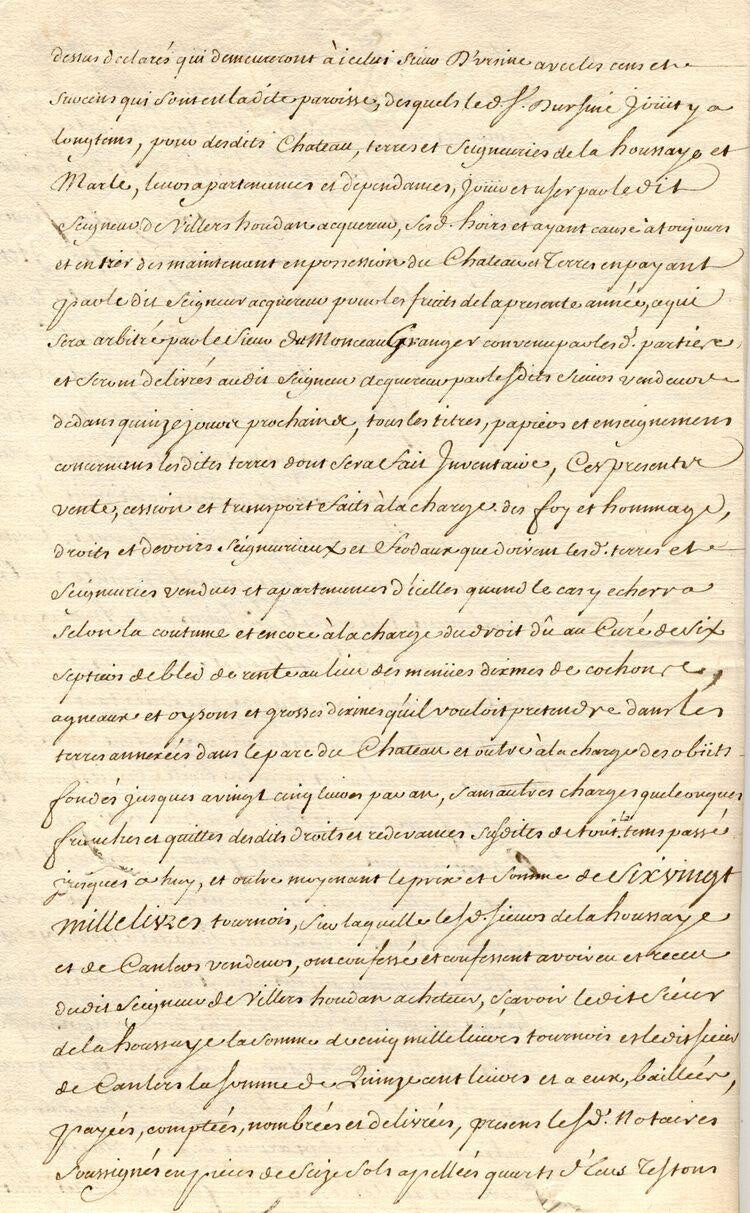 dessus declarés qui demeureront à icelui Sieur D'ursine avec les cens et
surcens qui sont en ladite paroisse, desquels le d. Sr. Dursine joüit y a
longtems, pour desdits Chateau, terres et Seigneuries de la houssaye et
Marle, leurs apartenances et dependances, joüir et user par le dit
Seigneur de Villers houdan acquereur, ses d. hoirs et ayant cause à toujours
et entrer des maintenant en possession du Chateau et Terres en payant
par le dit Seigneur acquereur pour les fruits de la presente année, ce qui
sera arbitré par le Sieur du Monceau Granger convenu par les d. parties,
et seront delivrés audit Seigneur acquereur par les dits Sieurs vendeurs
dedans quinze jours prochains, tous les titres, papiers et enseignemens
concernans lesdites terres dont sera fait Inventaire, Ces presentes
vente, cession et transport faits à la charge des foy et hommage,
droits et devoirs Seigneuriaux et feodaux que doivent les d. terres et
Seigneuries vendues et apartenances d'icelles quand le cas y echerra
selon la coutume et encore à la charge du droit dû au Curé de six
septiers de bled de rente au lieu des menües dixmes de cochons,
agneaux et oysons et grosses dixmes qu'il vouloit pretendre dans les
terres annexées dans le parc du Chateau et outre à la charge des obiits
fondés jusques a vingt cinq livres par an, sans autres charges quelconques
franches et quittes desdits droits et redevances susdites de tout le tems passé
jusques a huy, et outre moyenant le prix et somme de Six vingt
mille livres tournois, sur laquelle les d. sieurs de la houssaye
et de Canlers vendeurs, ont confessé et confessent avoir eu et receu
dudit Seigneur de Villers houdan acheteur, sçavoir ledit Sieur
de la houssaye la somme de cinq mille livres tournois et ledit sieur
de Canlers la somme de Quinze cent livres et a eux, baillées,
payées, comptées, nombrées et delivrées, presens les d. Notaires
soussignés en pieces de seize sols apellées quarts d'Ecus Testons